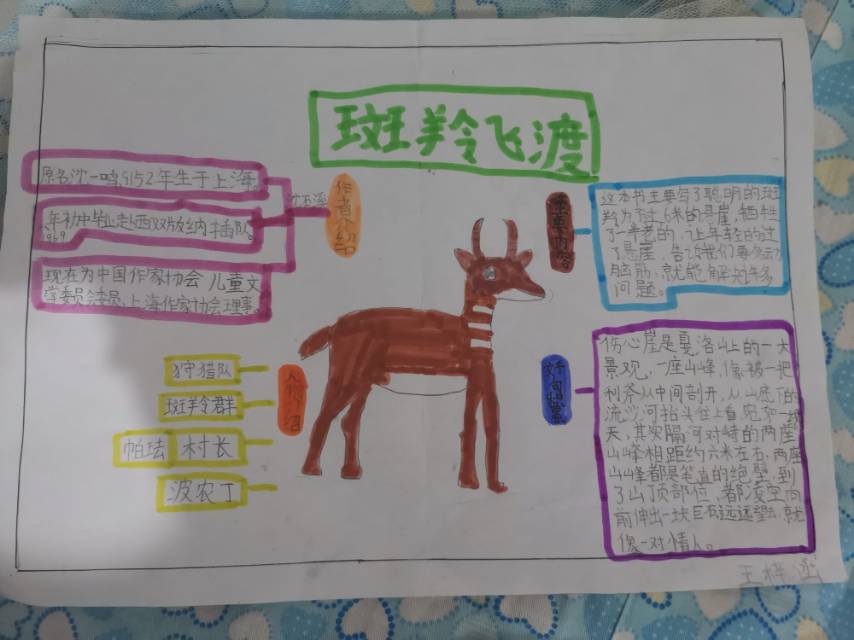 斑羚飞渡
原名沈一鸣,1952年生于上海。
1969年初中毕业赴西双版纳插队。
现在为中国作家协会儿童文
学委员会委员、上海作家协会理事。
沈石溪
作者介绍
狩猎队
斑羚群
帕珐 村长
波农丁
人物介绍
主要内容
这本书主要写了聪明的斑
羚为了过6米的悬崖,牺牲
了一半老的,让年轻的过
了悬崖,告诉我们要多动
脑筋,就能解决许多
问题。
好句
伤心崖是戛洛山上的一大
景观,一座山峰,像被一把
利斧从中间剖开,从山底下的
流沙河抬头往上看,宛如一线
天,其实隔河对峙的两座
山峰相距约六米左右,两座
山峰都是笔直的绝壁,到
了山顶部位,都凌空向
前伸出一块巨石,远远望去,就
像一对情人。
王梓涵